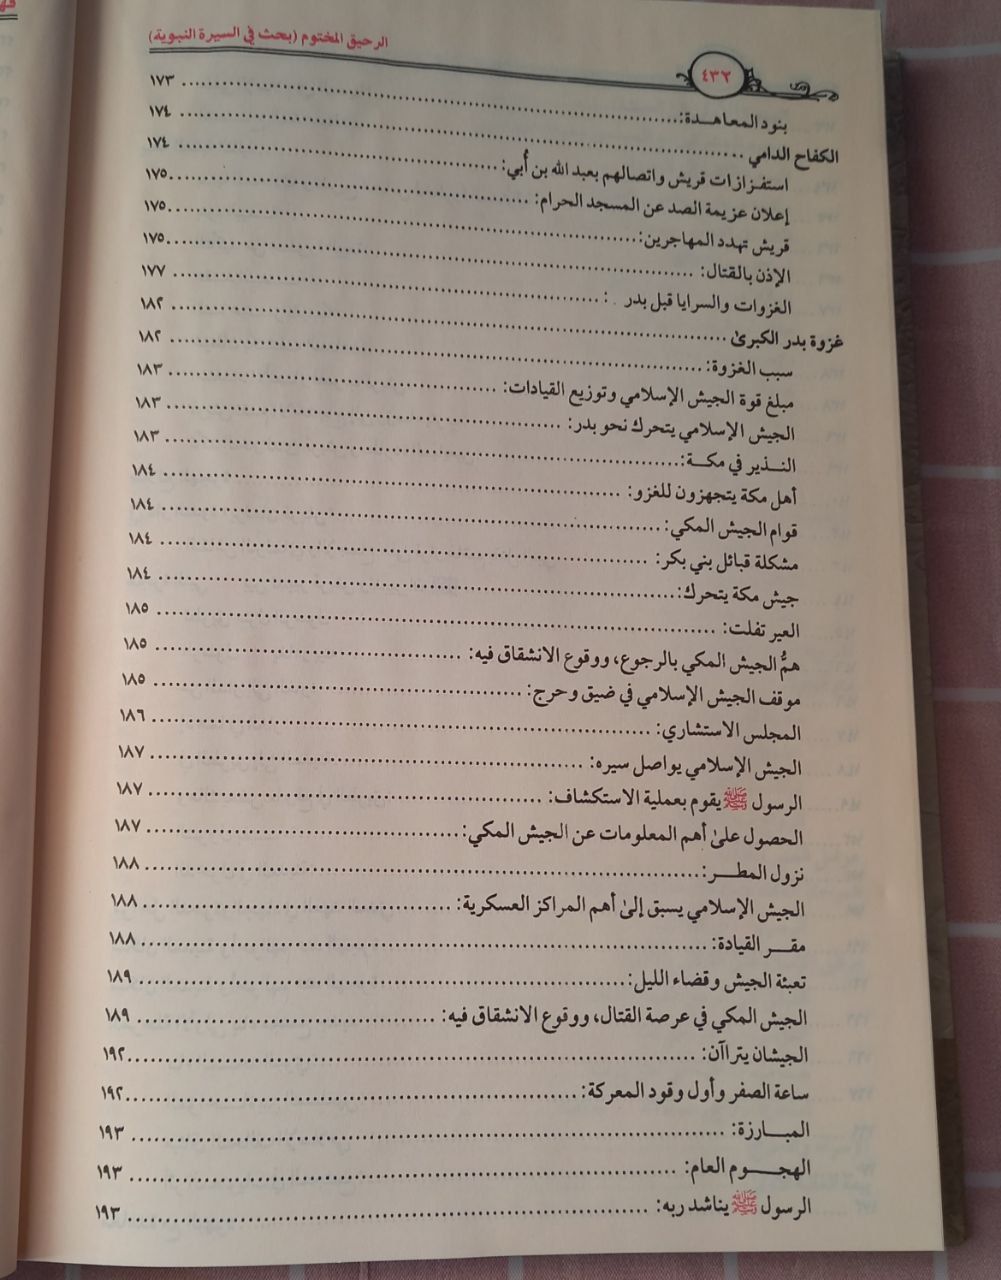 الرحيق المختوم (بحث في السيرة النبوية)
٤٣٢
بنود المعاهدة: ........ ١٧٣
الكفاح الدامي ........ ١٧٤
استفزازات قريش واتصالهم بعبد الله بن أُبي: ........ ١٧٤
إعلان عزيمة الصد عن المسجد الحرام: ........ ١٧٥
قريش تهدد المهاجرين: ........ ١٧٥
الإذن بالقتال: ........ ١٧٥
الغزوات والسرايا قبل بدر : ........ ١٧٧
غزوة بدر الكبرىٰ ........ ١٨٢
سبب الغزوة: ........ ١٨٢
مبلغ قوة الجيش الإسلامي وتوزيع القيادات: ........ ١٨٣
الجيش الإسلامي يتحرك نحو بدر: ........ ١٨٣
النذير في مكة: ........ ١٨٣
أهل مكة يتجهزون للغزو: ........ ١٨٤
قوام الجيش المكي: ........ ١٨٤
مشكلة قبائل بني بكر: ........ ١٨٤
جيش مكة يتحرك: ........ ١٨٤
العير تفلت: ........ ١٨٥
همُّ الجيش المكي بالرجوع، ووقوع الانشقاق فيه: ........ ١٨٥
موقف الجيش الإسلامي في ضيق وحرج: ........ ١٨٥
المجلس الاستشاري: ........ ١٨٦
الجيش الإسلامي يواصل سيره: ........ ١٨٧
الرسول ﷺ يقوم بعملية الاستكشاف: ........ ١٨٧
الحصول علىٰ أهم المعلومات عن الجيش المكي: ........ ١٨٧
نزول المطر: ........ ١٨٨
الجيش الإسلامي يسبق إلىٰ أهم المراكز العسكرية: ........ ١٨٨
مقر القيادة: ........ ١٨٨
تعبئة الجيش وقضاء الليل: ........ ١٨٩
الجيش المكي في عرصة القتال، ووقوع الانشقاق فيه: ........ ١٨٩
الجيشان يتراآن: ........ ١٩٢
ساعة الصفر وأول وقود المعركة: ........ ١٩٢
المبارزة: ........ ١٩٣
الهجوم العام: ........ ١٩٣
الرسول ﷺ يناشد ربه: ........ ١٩٣